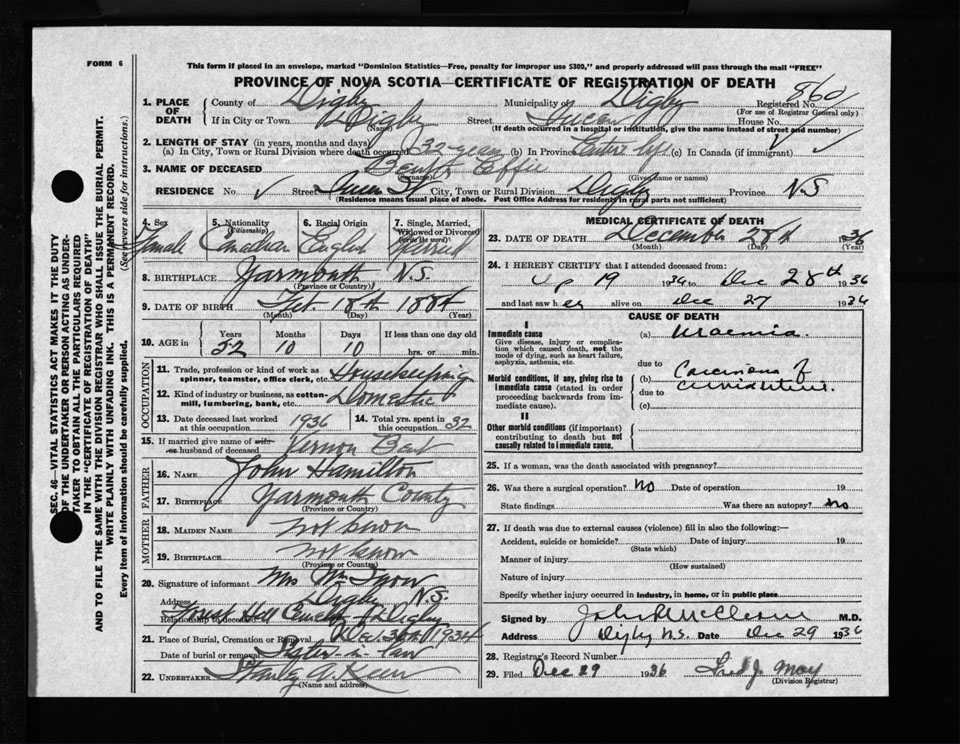 FORM 6
This form if placed in an envelope, marked "Dominion Statistics—Free, penalty for improper use $300," and properly addressed will pass through the mail "FREE"
PROVINCE OF NOVA SCOTIA—CERTIFICATE OF REGISTRATION OF DEATH
SEC. 46—VITAL STATISTICS ACT MAKES IT THE DUTY
OF THE UNDERTAKER OR PERSON ACTING AS UNDER-
TAKER TO OBTAIN ALL THE PARTICULARS REQUIRED
IN THE "CERTIFICATE OF REGISTRATION OF DEATH"
AND TO FILE THE SAME WITH THE DIVISION REGISTRAR WHO SHALL ISSUE THE BURIAL PERMIT.
WRITE PLAINLY WITH UNFADING INK. THIS IS A PERMANENT RECORD.
Every item of information should be carefully supplied. (See reverse side for instructions.)
1. PLACE OF DEATH County of Digby Municipality of Digby Registered No. 860
(For use of Registrar General only)
If in City or Town Digby Street Queen House No.
(Name) (If death occurred in a hospital or institution, give the name instead of street and number)
2. LENGTH OF STAY (in years, months and days)
(a) In City, Town or Rural Division where death occurred 32 years (b) In Province Entire life (c) In Canada (if immigrant) ✓
3. NAME OF DECEASED Effie
(Surname) (Given name or names)
RESIDENCE No. ✓ Street Queen St City, Town or Rural Division Digby Province N.S
(Residence means usual place of abode. Post Office Address for residents in rural parts not sufficient)
4. Sex Female
5. Nationality (Citizenship) Canadian
6. Racial Origin English
7. Single, Married, Widowed or Divorced (write the word) Married
8. BIRTHPLACE Yarmouth N.S.
(Province or Country)
9. DATE OF BIRTH Feb. 18th 1884
(Month) (Day) (Year)
10. AGE in Years 52 Months 10 Days 10 If less than one day old hrs. or min.
OCCUPATION
11. Trade, profession or kind of work as spinner, teamster, office clerk, etc. Housekeeping
12. Kind of industry or business, as cotton-mill, lumbering, bank, etc. Domestic
13. Date deceased last worked at this occupation 1936
14. Total yrs. spent in this occupation 32
15. If married give name of wife or husband of deceased Vernon
FATHER
16. NAME John Hamilton
17. BIRTHPLACE Yarmouth County
(Province or Country)
MOTHER
18. MAIDEN NAME not know
19. BIRTHPLACE not know
(Province or Country)
20. Signature of informant Mrs Wm Snow
Address Digby N.S.
Relationship to deceased Forest Hill Cemetery Digby
21. Place of Burial, Cremation or Removal
Date of burial or removal Sister-in-law
22. UNDERTAKER Stanley
(Name and address)
MEDICAL CERTIFICATE OF DEATH
23. DATE OF DEATH December 28th 1936
(Month) (Day) (Year)
24. I HEREBY CERTIFY that I attended deceased from:
19 1936 to Dec 28th 1936
and last saw her alive on Dec 27 1936
CAUSE OF DEATH
I
Immediate cause
Give disease, injury or complication which caused death, not the mode of dying, such as heart failure, asphyxia, asthenia, etc.
(a) Uraemia.
due to
Morbid conditions, if any, giving rise to immediate cause (stated in order proceeding backwards from immediate cause).
(b) Carcinoma of
due to
(c)
II
Other morbid conditions (if important) contributing to death but not causally related to immediate cause.
25. If a woman, was the death associated with pregnancy?
26. Was there a surgical operation? No Date of operation 19
State findings Was there an autopsy? no
27. If death was due to external causes (violence) fill in also the following:—
Accident, suicide or homicide? Date of injury 19
(State which)
Manner of injury
(How sustained)
Nature of injury
Specify whether injury occurred in industry, in home, or in public place
Signed by M.D.
Address Digby N.S. Date Dec 29 1936
28. Registrar's Record Number
29. Filed Dec 29 1936 May
(Division Registrar)